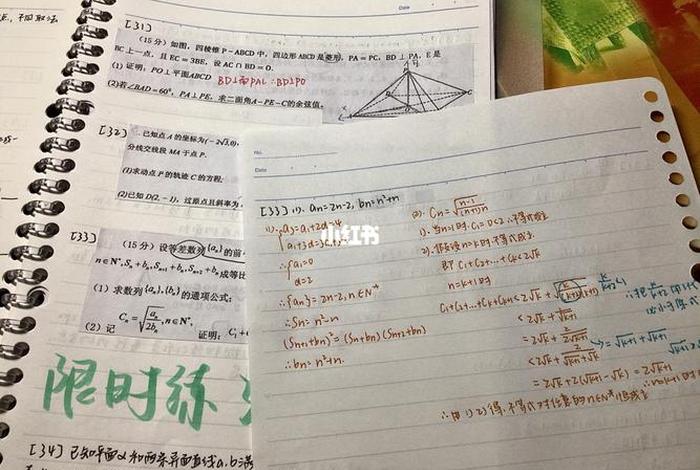 Date
[31]
(15分)如图，四棱锥P-ABCD中，四边形ABCD是菱形，PA=PC，BD⊥PA，E是
BC上一点，且EC=3BE，设AC∩BD=O.
(1)证明：PO⊥平面ABCD BD⊥面PAC ∴BD⊥PO
(2)若∠BAD=60°，PA⊥PE，求二面角A-PE-C的余弦值.
[32]
已知点A的坐标为(-2√3,0),
分线交线段MA于点P.
(1)求动点P的轨迹C的方程;
(2)已知D(2,-1)，过原点且斜率为
[33]
(15分)设等差数列{aₙ}的前
n∈N*, Sₙ+bₙ, Sₙ₊₁+bₙ, Sₙ₊₂+bₙ成等比
(1)求数列{aₙ},{bₙ}的通项公式;
(2)记 Cₙ=√(aₙ/2bₙ), n∈N*, 证明: C₁+
限时练
[34]已知平面α和两条异面直线a,b满
No.
Date
[33] (1). aₙ=2n-2, bₙ=n²+n
(1). a₃=a₁+2d=4
∴a₁=0
d=2
∴{aₙ}=2n-2, n∈N*
∴Sₙ=n²-n
(Sₙ₊₁+bₙ)²=(Sₙ+bₙ)(Sₙ₊₂+bₙ)
∴bₙ=n²+n.
(2). Cₙ=√((n-1)/((n+1)n))
1). 当n=1时 C₁=0<2 不等式成立
2). 假设n=k时不等式成立
即 C₁+C₂+…+Cₖ<2√k
n=k+1时
C₁+C₂+…+Cₖ+Cₖ₊₁<2√k+
<2√k+1/√(k+1)
=2√k+2/(2√(k+1))
<2√k+2/(√(k+1)+√k)
=2√k+2(√(k+1)-√k)=2√(k+1)
∴由1)2)得，不等式对任意的n∈N*恒成立
小红书